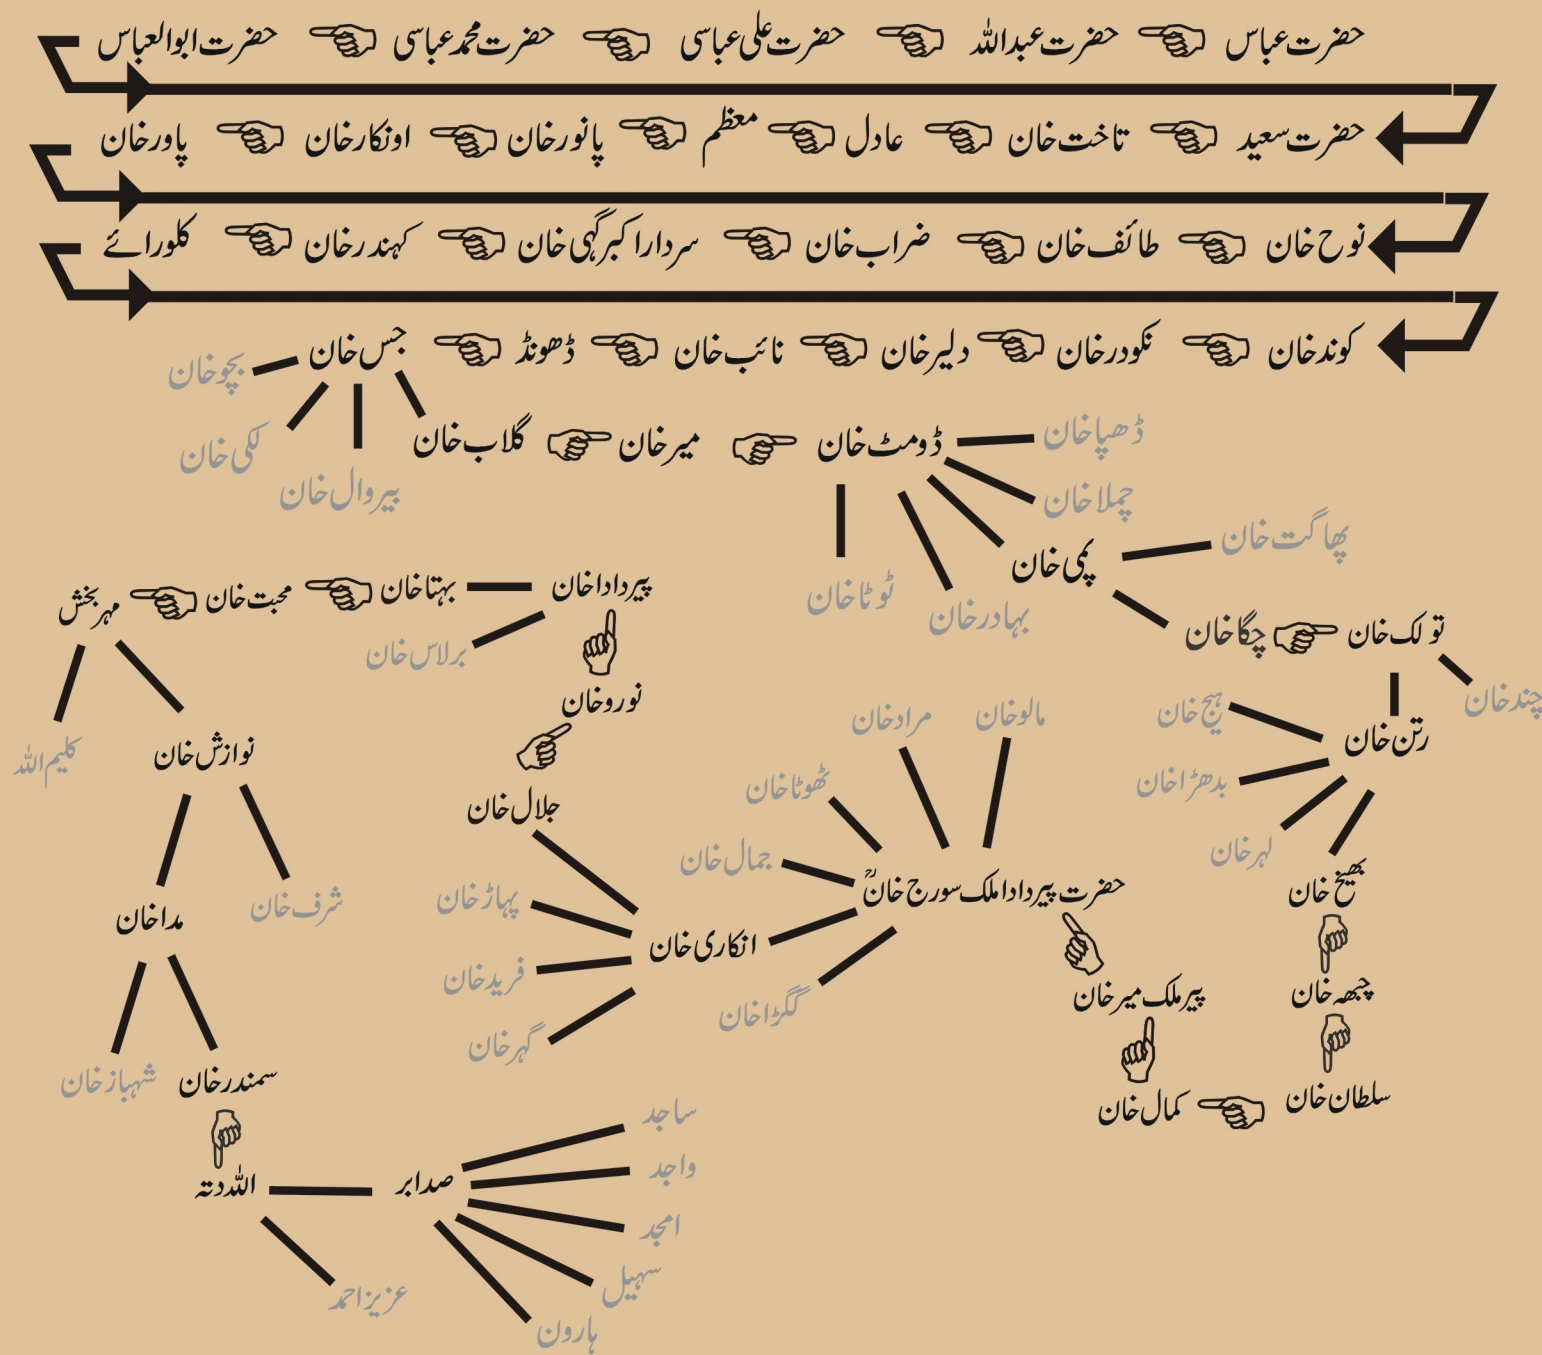 حضرت عباس حضرت عبداللہ حضرت علی عباسی حضرت محمد عباسی حضرت ابوالعباس
حضرت سعید تاخت خان عادل معظم پانور خان اونکار خان پاور خان
نوح خان طائف خان ضراب خان سردار اکبر گہی خان کہندر خان کلورائے
کوند خان نکودر خان دلیر خان نائب خان ڈھونڈ جس خان
بچو خان
لکی خان
بیروال خان
گلاب خان میر خان ڈومٹ خان
ڈھپا خان
چملا خان
پمی خان
بہادر خان
ٹوٹا خان
پھاگت خان
چگا خان تولک خان
چند خان
رتن خان
ہیج خان
بدھڑا خان
لہر خان
بھیخ خان
چبھہ خان
سلطان خان
کمال خان
پیر ملک میر خان
حضرت پیر دادا ملک سورج خانؒ
مالو خان
مراد خان
ٹھوٹا خان
جمال خان
انکاری خان
گگڑا خان
جلال خان
پہاڑ خان
فرید خان
گہر خان
نورو خان
پیر دادا خان
بہتا خان
برلاس خان
محبت خان
مہر بخش
کلیم اللہ
نوازش خان
شرف خان
مدا خان
شہباز خان
سمندر خان
اللہ دتہ
عزیز احمد
صدابر
ساجد
واجد
امجد
سہیل
ہارون